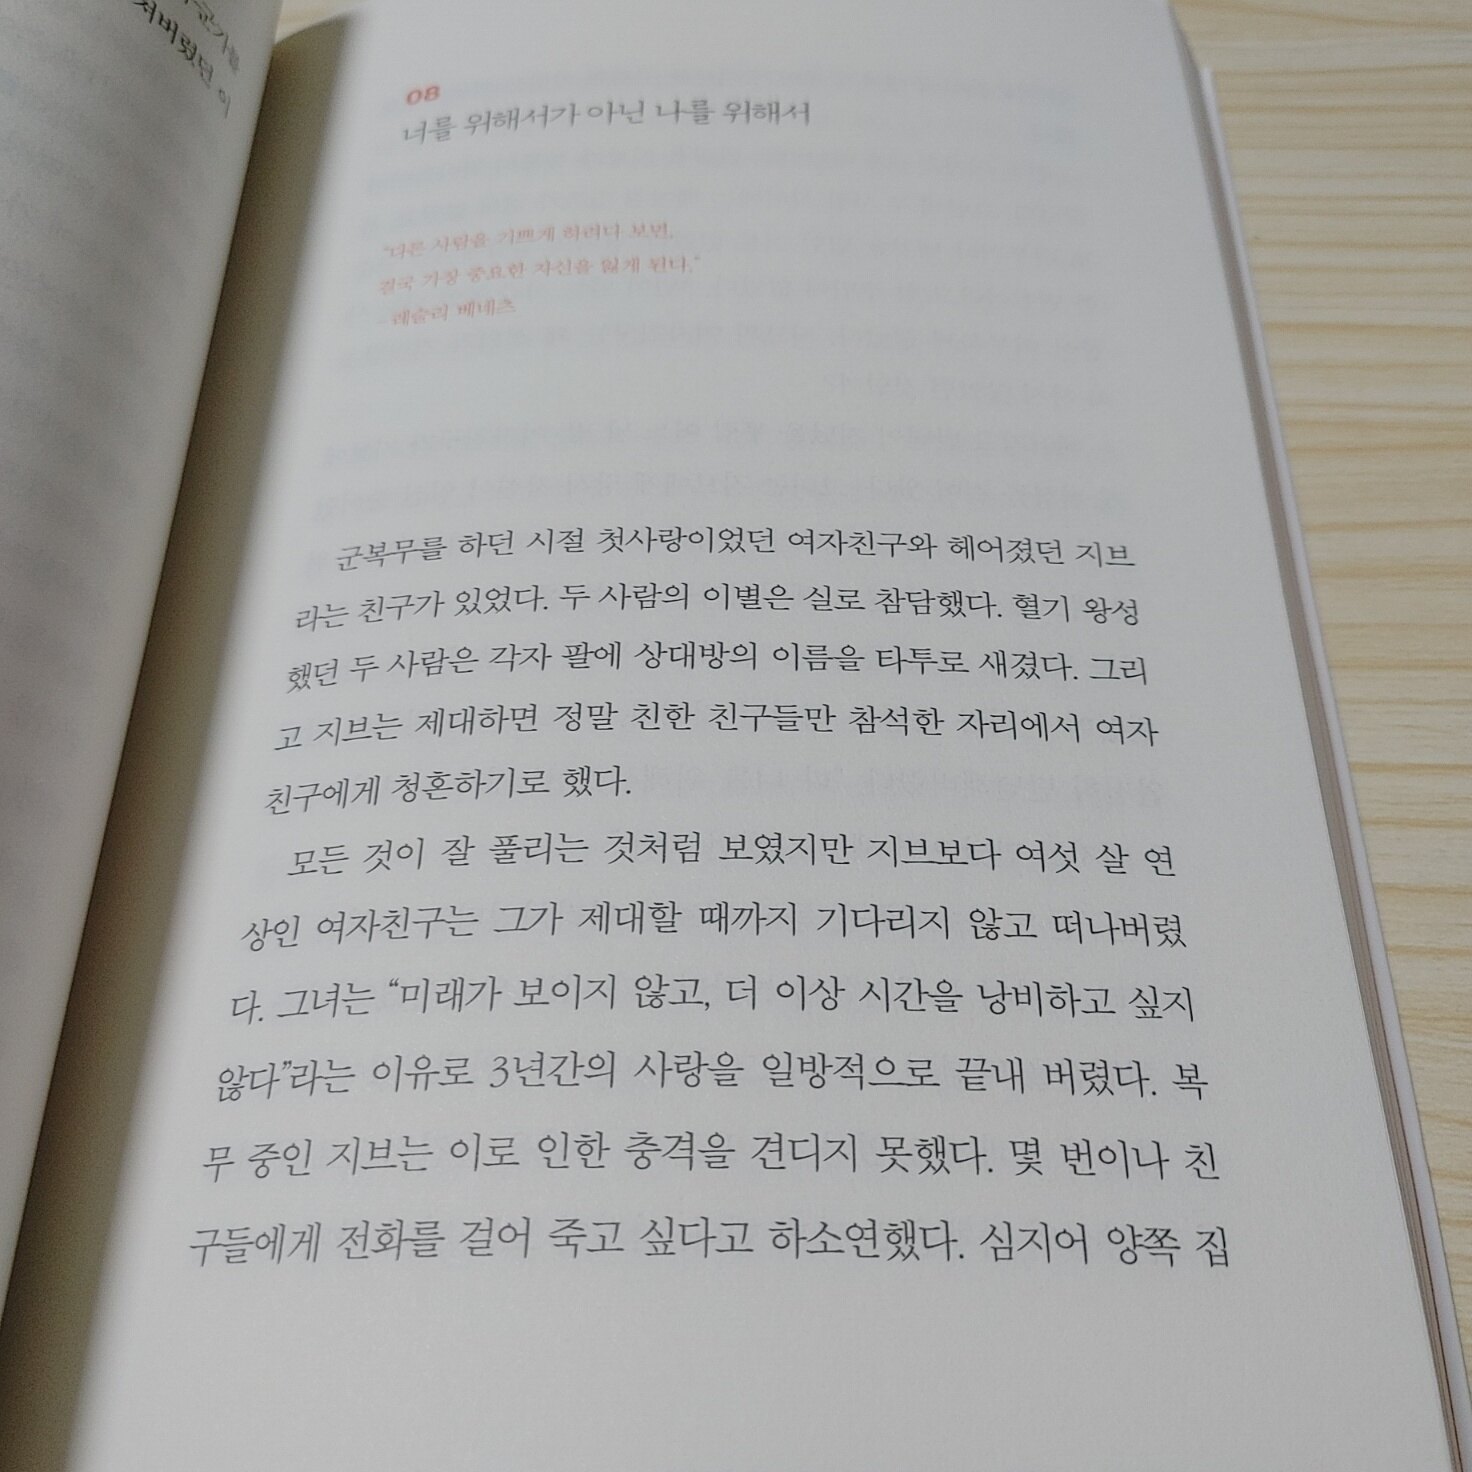 져버렸던 이
08
너를 위해서가 아닌 나를 위해서
"다른 사람을 기쁘게 하려다 보면,
결국 가장 중요한 자신을 잃게 된다."
- 레슬리 베네츠
군복무를 하던 시절 첫사랑이었던 여자친구와 헤어졌던 지브
라는 친구가 있었다. 두 사람의 이별은 실로 참담했다. 혈기 왕성
했던 두 사람은 각자 팔에 상대방의 이름을 타투로 새겼다. 그리
고 지브는 제대하면 정말 친한 친구들만 참석한 자리에서 여자
친구에게 청혼하기로 했다.
모든 것이 잘 풀리는 것처럼 보였지만 지브보다 여섯 살 연
상인 여자친구는 그가 제대할 때까지 기다리지 않고 떠나버렸
다. 그녀는 “미래가 보이지 않고, 더 이상 시간을 낭비하고 싶지
않다”라는 이유로 3년간의 사랑을 일방적으로 끝내 버렸다. 복
무 중인 지브는 이로 인한 충격을 견디지 못했다. 몇 번이나 친
구들에게 전화를 걸어 죽고 싶다고 하소연했다. 심지어 양쪽 집